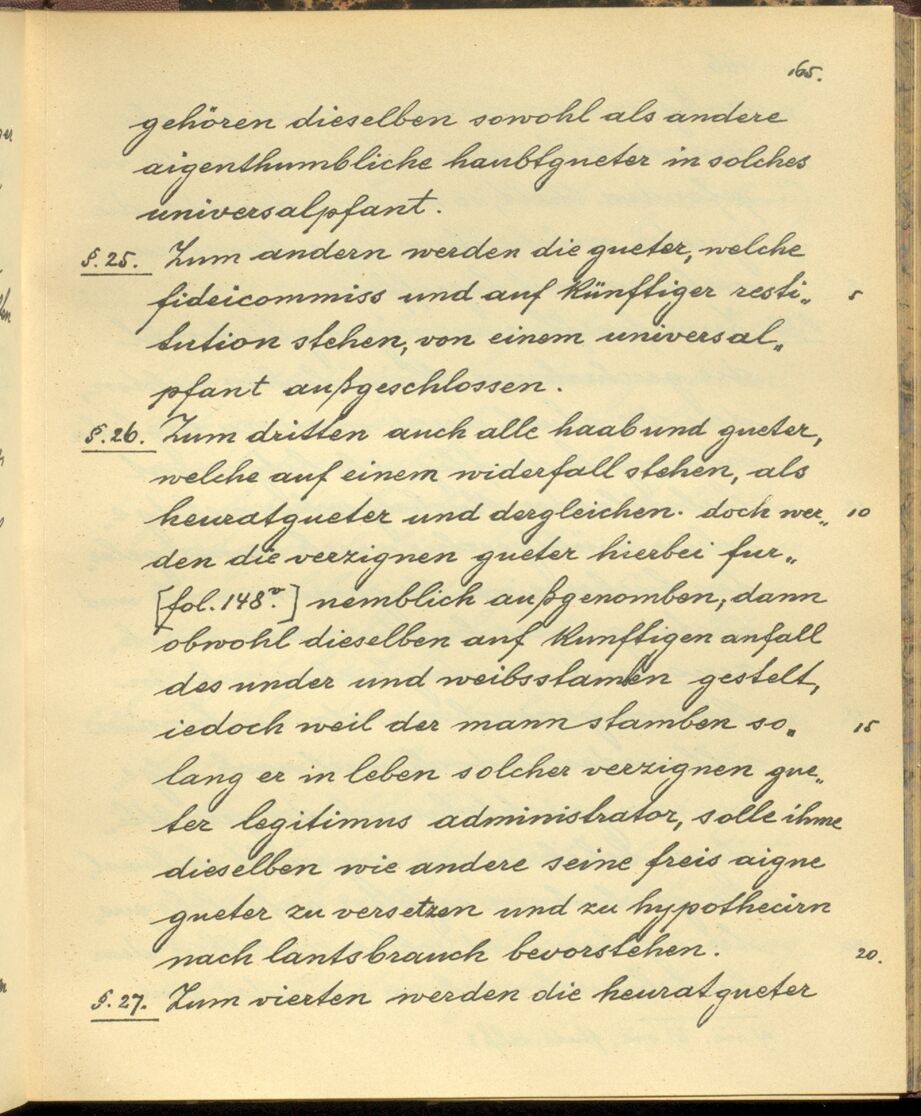 165.
gehören dieselben sowohl als andere
aigenthumbliche haubtgueter in solches
universalpfant.
§. 25. Zum andern werden die gueter, welche
fideicommiss und auf künftiger resti„ 5
tution stehen, von einem universal„
pfant außgeschlossen.
§. 26. Zum dritten auch alle haab und gueter,
welche auf einem widerfall stehen, als
heuratgueter und dergleichen. doch wer„ 10
den die verzignen gueter hierbei fur„
[fol. 148v.] nemblich außgenomben, dann
obwohl dieselben auf kunftigen anfall
des under und weibsstamben gestelt,
iedoch weil der mannstamben so„ 15
lang er in leben solcher verzignen gue„
ter legitimus administrator, solle ihme
dieselben wie andere seine freis aigne
gueter zu versetzen und zu hypothecirn
nach lantsbrauch bevorstehen. 20.
§. 27. Zum vierten werden die heuratgueter